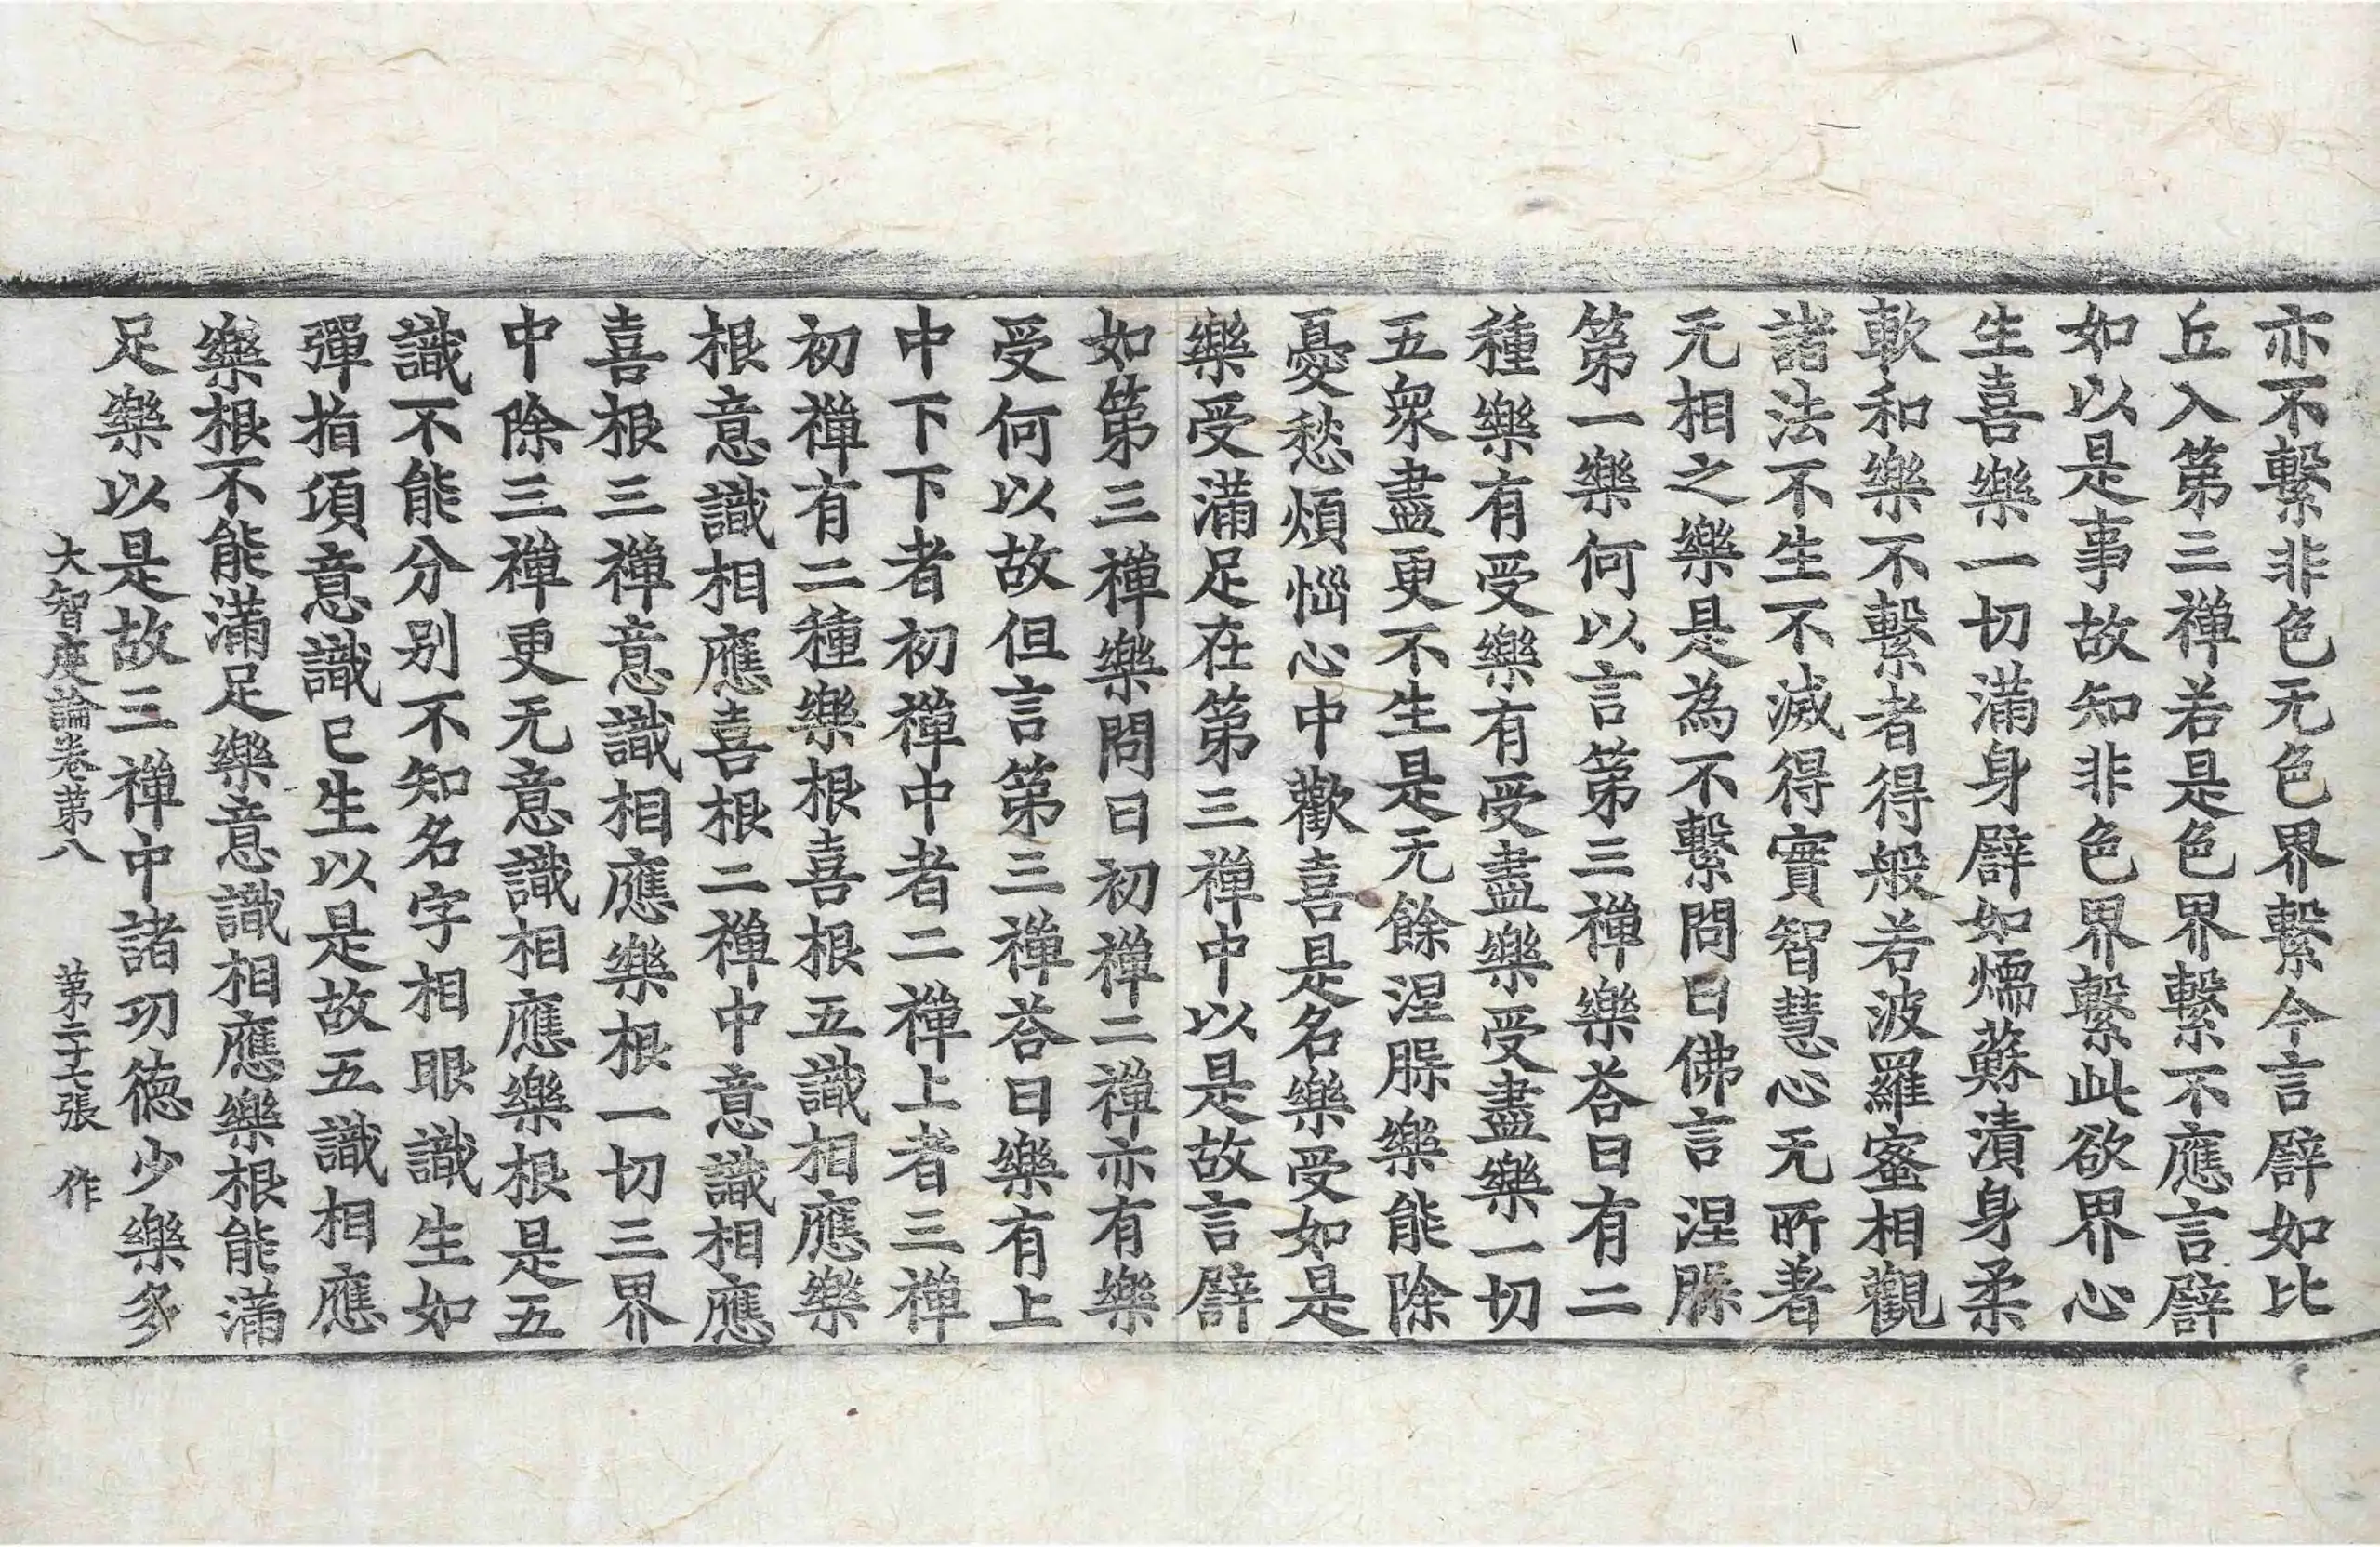 亦不繫非色无色界繫今言譬如比
丘入第三禅若是色界繫不應言譬
如以是事故知非色界繫此欲界心
生喜樂一切滿身譬如煗蘇漬身柔
軟和樂不繫者得般若波羅蜜相觀
諸法不生不滅得實智慧心无所著
无相之樂是為不繫問曰佛言涅槃
第一樂何以言第三禅樂荅曰有二
種樂有受樂有受盡樂受盡樂一切
五衆盡更不生是无餘涅槃樂能除
憂愁煩惱心中歡喜是名樂受如是
樂受滿足在第三禅中以是故言譬
如第三禅樂問曰初禅二禅亦有樂
受何以故但言第三禅荅曰樂有上
中下下者初禅中者二禅上者三禅
初禅有二種樂根喜根五識相應樂
根意識相應喜根二禅中意識相應
喜根三禅意識相應樂根一切三界
中除三禅更无意識相應樂根是五
識不能分別不知名字相眼識生如
彈指頃意識已生以是故五識相應
樂根不能滿足樂意識相應樂根能滿
足樂以是故三禅中諸功德少樂多
大智度論卷第八 第二十七張 作